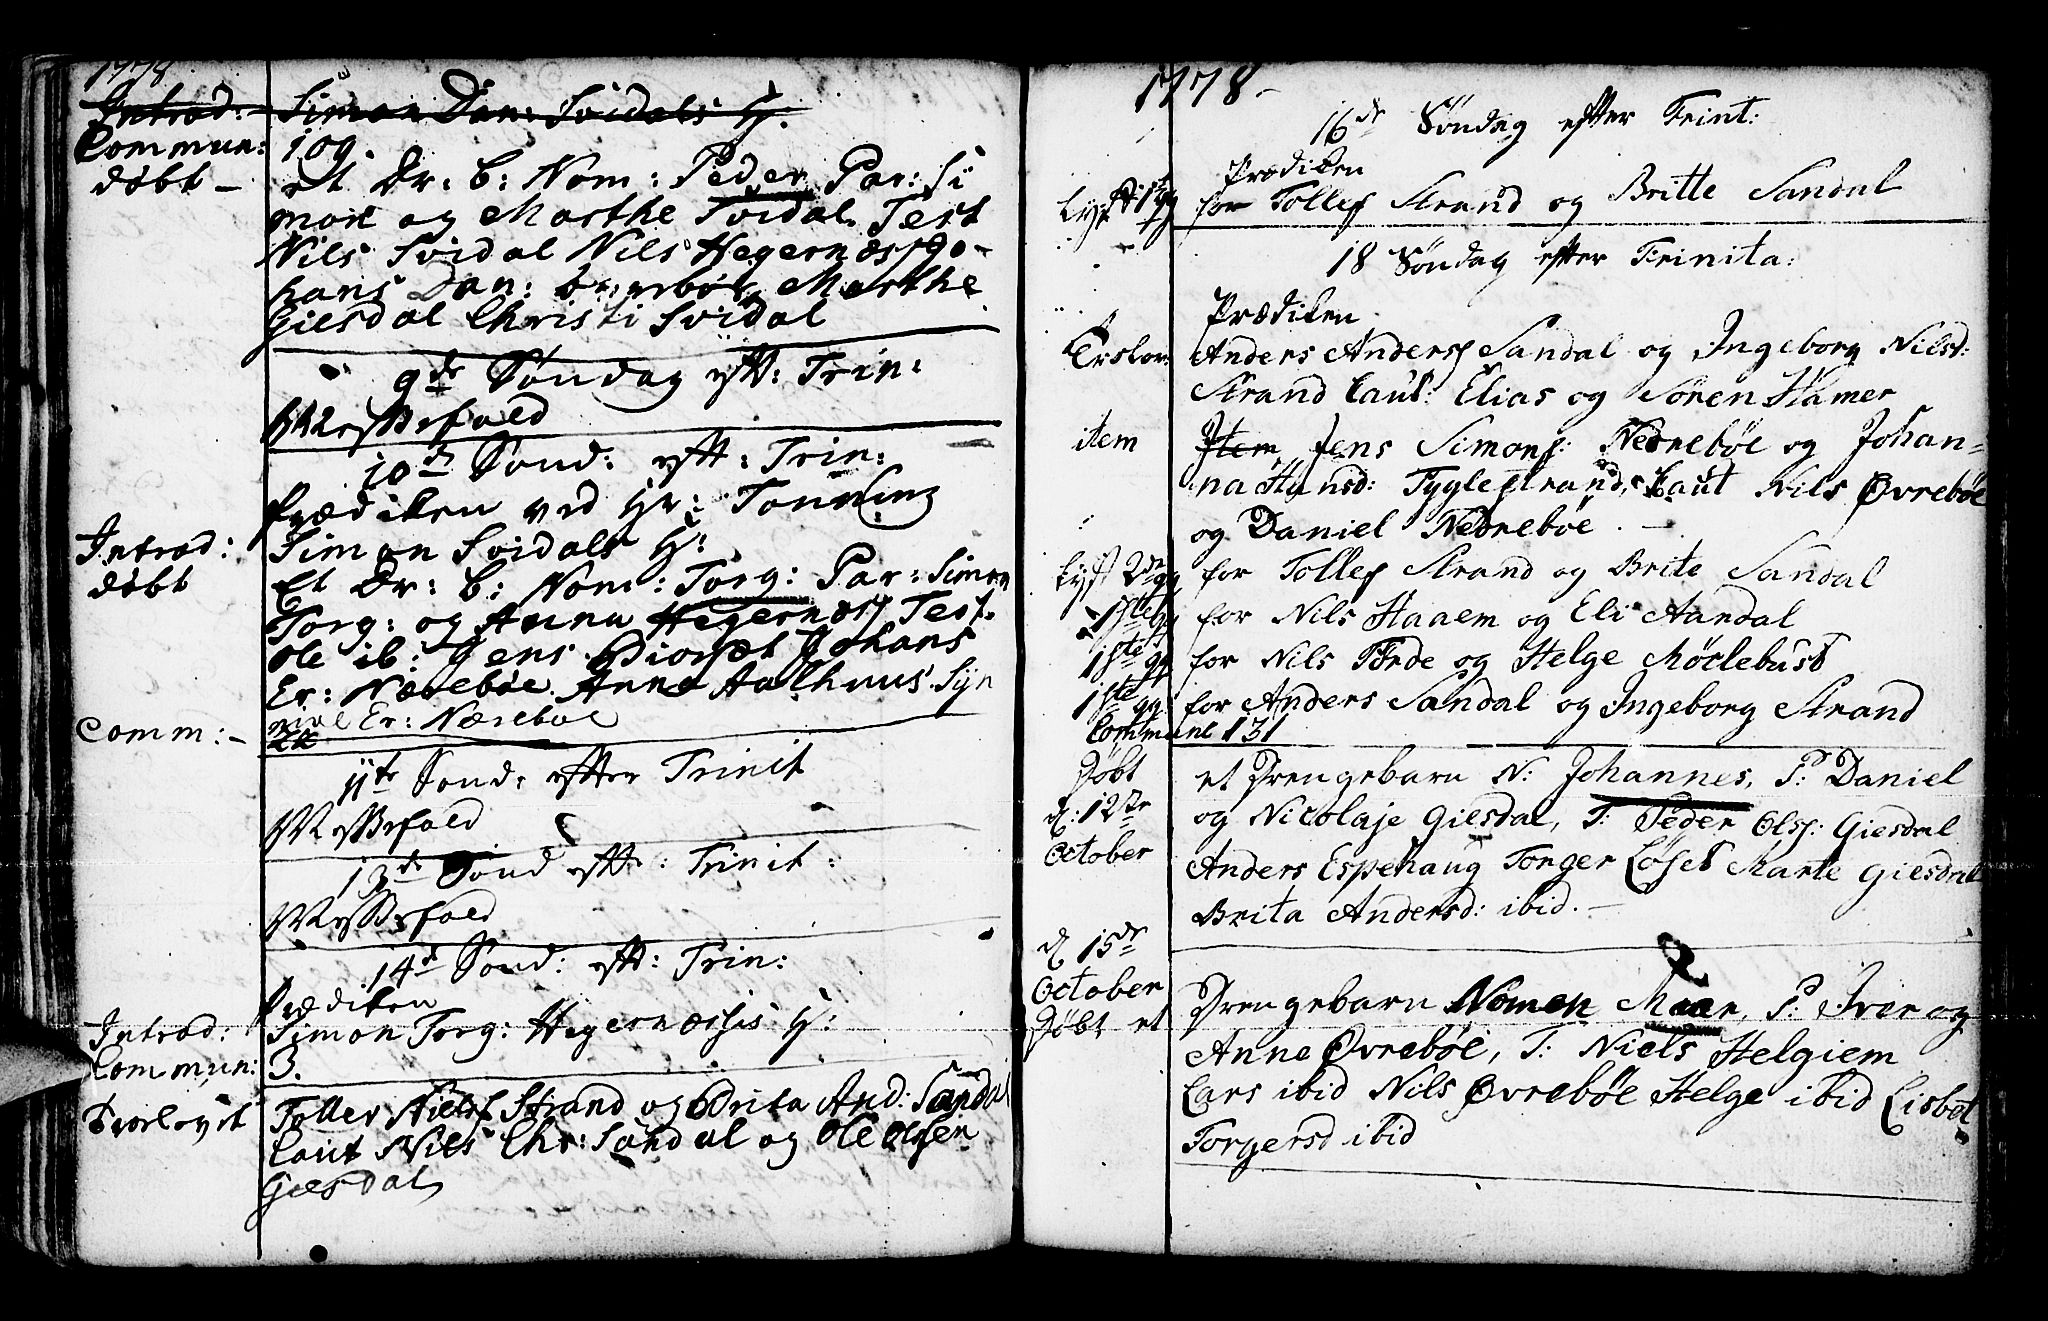 1778
Introd: Simon Dan: Svidals H.
Commun: 109.
döbt – et Dr: b: Nom: Peder Par: Si
mon og Marthe Svidal Test
Nils Svidal Nils Hegernæss Jo-
hans Dan: Marthe
Giesdal Christi Svidal
9de Søndag eft: Trin:
Messefald
10de Sønd: eft: Trin:
Prædiken ved Hr: Tonning
Introd: Simon Svidals H:
döbt Et Dr: b: Nom: Torg: Par: Simon
Torg: og Anna Hegernæss Test.
Ole ib: Jens Johans
Er: Nærebøe. Anne Aalhuus. Syn
nive Er: Nærebøe
Comm: –
11te Sønd: efter Trinit
Messefald
13de Sønd eft: Trinit:
Messefald
14de Sønd: eft: Trin:
Prædiken
Introd: Simon Torg: Hegernæsses H:
Commun: 3.
Trolovit Tollev Nielss Strand og Brita And: Sandal
Caut Nils Chr: Sandal og Ole Olsen
Giesdal
1778-
16de Søndag efter Trint:
Prædiken
Lyst 1ste gg for Tollef Strand og Britte Sandal
18 Søndag efter Trinita:
Prædiken
Troelov: Anders Anderss Sandal og Ingeborg Nilsd:
Strand Caut: Elias og Søren Hamer
item Item Jens Simons: Nedrebøe og Johan-
na Hansd: Fyglestrand, Caut Nils Øvrebøe
og Daniel Nedrebøe. –
Lyst 2den gg for Tollef Strand og Brite Sandal
1ste gg for Nils Haaem og Eli Aandal
1ste gg for Nils Førde og Helge Møclebust
1ste gg: for Anders Sandal og Ingeborg Strand
Communi 131
Døbt et Drengebarn N: Johannes, P: Daniel
d: 12te og Nicolaje Giesdal, T: Peder Olss: Giesdal
October Anders Espehaug Torger Løset Marte Giesdal
Brita Andersd: ibid. –
d 15de
October
Døbt et Drengebarn Nomen P: Iver og
Anne Øvrebøe, T: Niels Helgiem
Lars ibid Nils Øvrebøe Helge ibid Lisbet
Torgersd ibid